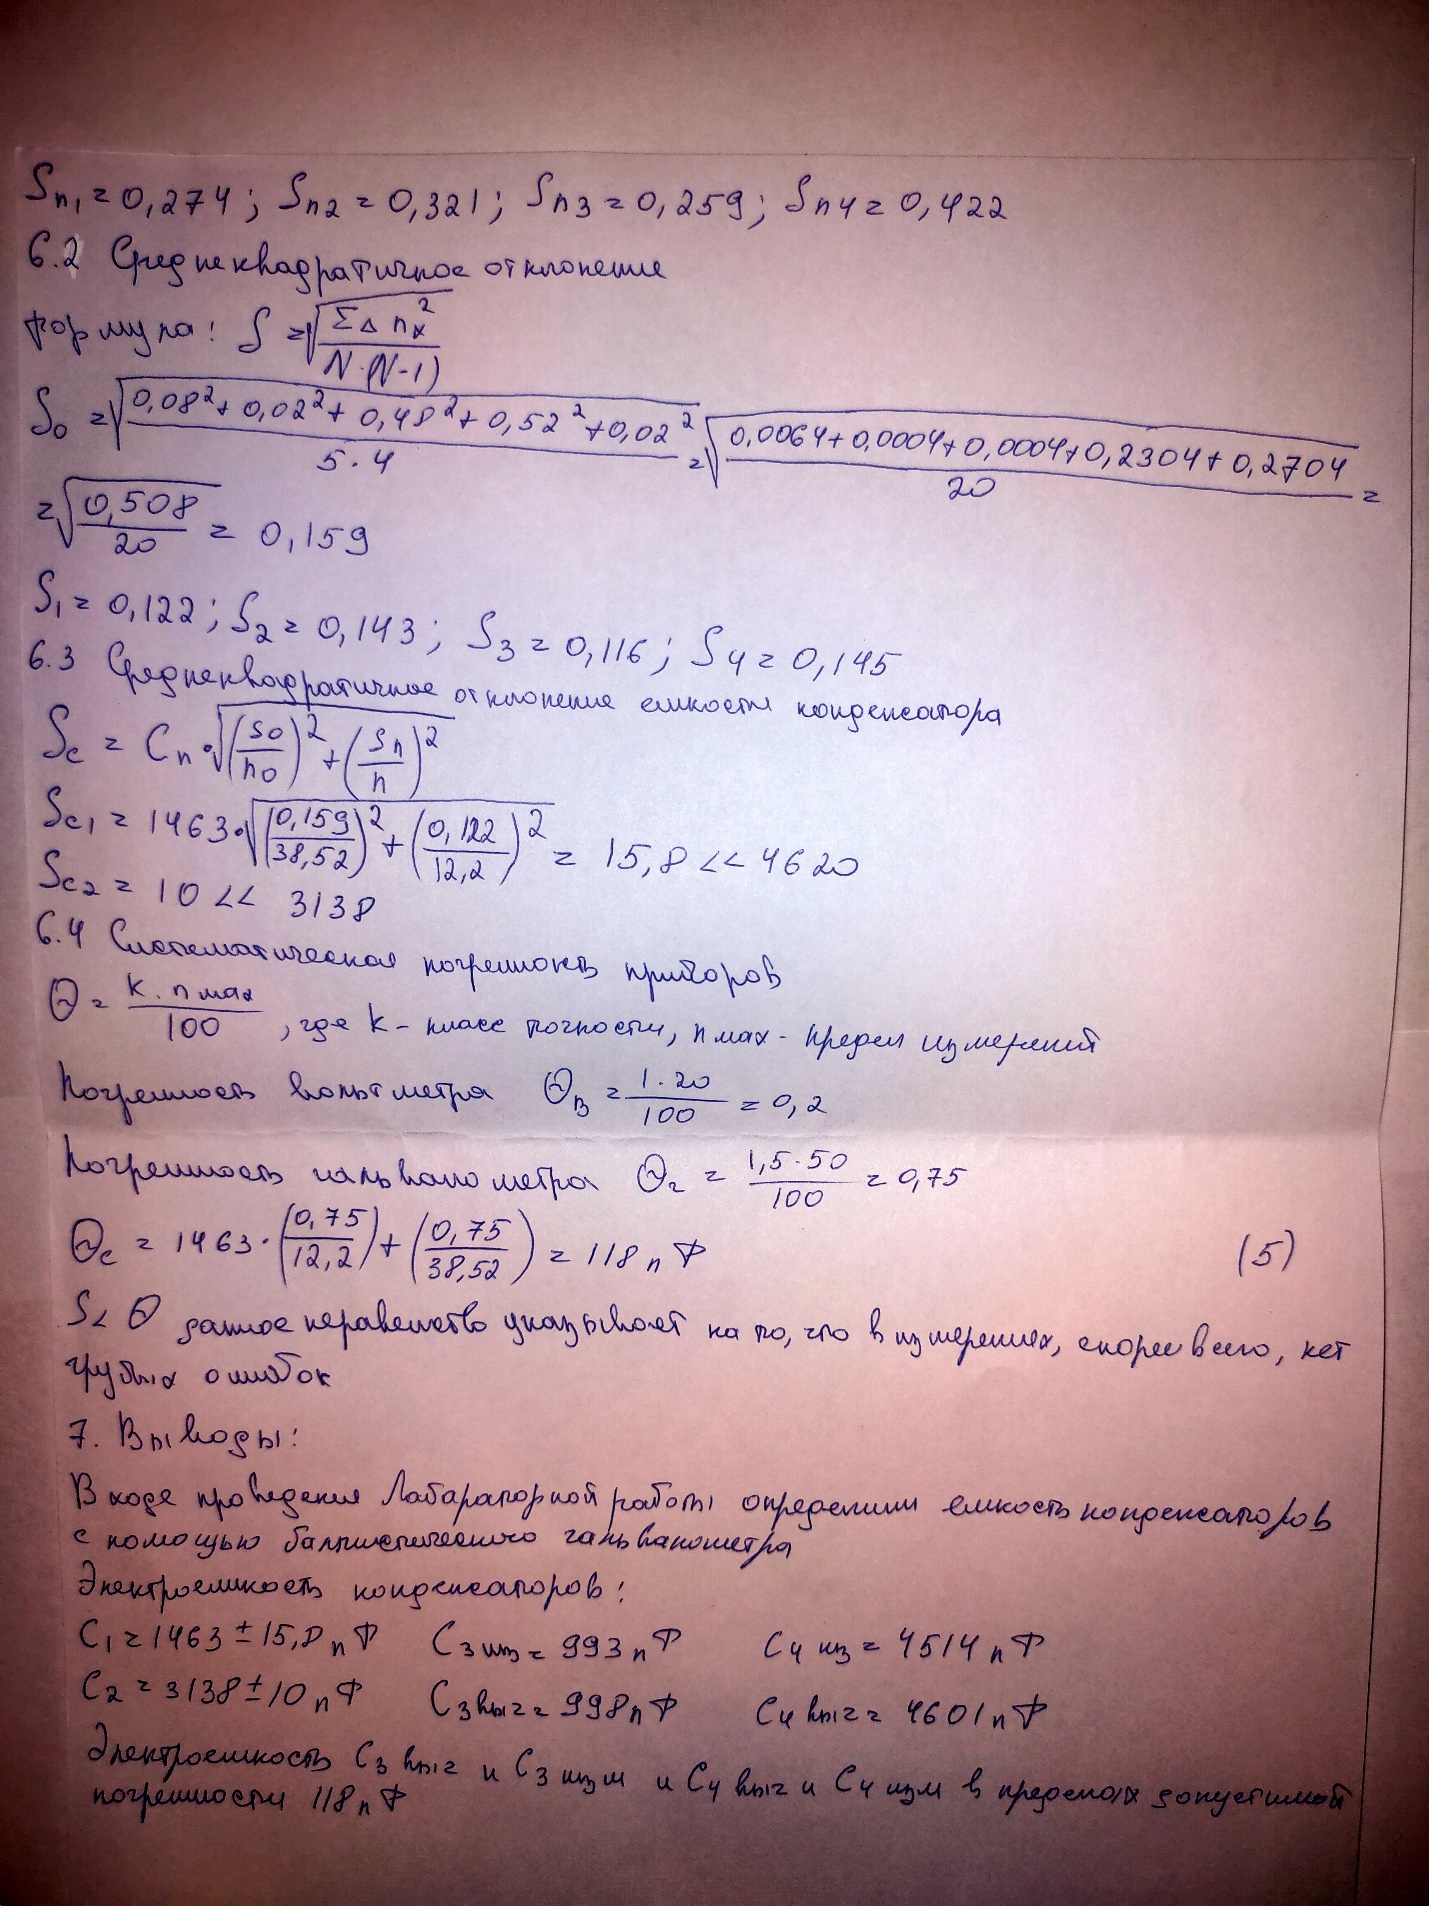 Sn₁ = 0,274; Sn2 = 0,321; Sn3 = 0,259; Sn4 = 0,422
6.2 Среднеквадратичное отклонение
формула: S = √(ΣΔnx² / N·(N-1))
S₀ = √((0,08² + 0,02² + 0,48² + 0,52² + 0,02²) / 5·4) = √((0,0064+0,0004+0,0004+0,2304+0,2704) / 20) =
= √(0,508 / 20) = 0,159
S₁ = 0,122; S₂ = 0,143; S3 = 0,116; S4 = 0,145
6.3 Среднеквадратичное отклонение емкости конденсатора
Sc = Cn·√((S0/n0)² + (Sn/n)²)
Sc₁ = 1463·√((0,159/38,52)² + (0,122/12,2)²) = 15,8 << 4620
Sc₂ = 10 << 3138
6.4 Систематическая погрешность приборов
Θ = k·nмах / 100, где k - класс точности, nмах - предел измерений
Погрешность вольтметра ΘB = 1·20 / 100 = 0,2
Погрешность гальванометра Θг = 1,5·50 / 100 = 0,75
Θc = 1463·(0,75/12,2) + (0,75/38,52) = 118 пФ (5)
S < Θ данное неравенство указывает на то, что в измерениях, скорее всего, нет
грубых ошибок
7. Выводы:
В ходе проведения Лабараторной работы определили емкость конденсаторов
с помощью баллистического гальванометра
Электроемкость конденсаторов:
C₁ = 1463 ± 15,8 пФ C3 из = 993 пФ C4 из = 4514 пФ
C₂ = 3138 ± 10 пФ C3 выч = 998 пФ C4 выч = 4601 пФ
Электроемкость C3 выч и C3 изм и C4 выч и C4 изм в пределах допустимой
погрешности 118 пФ